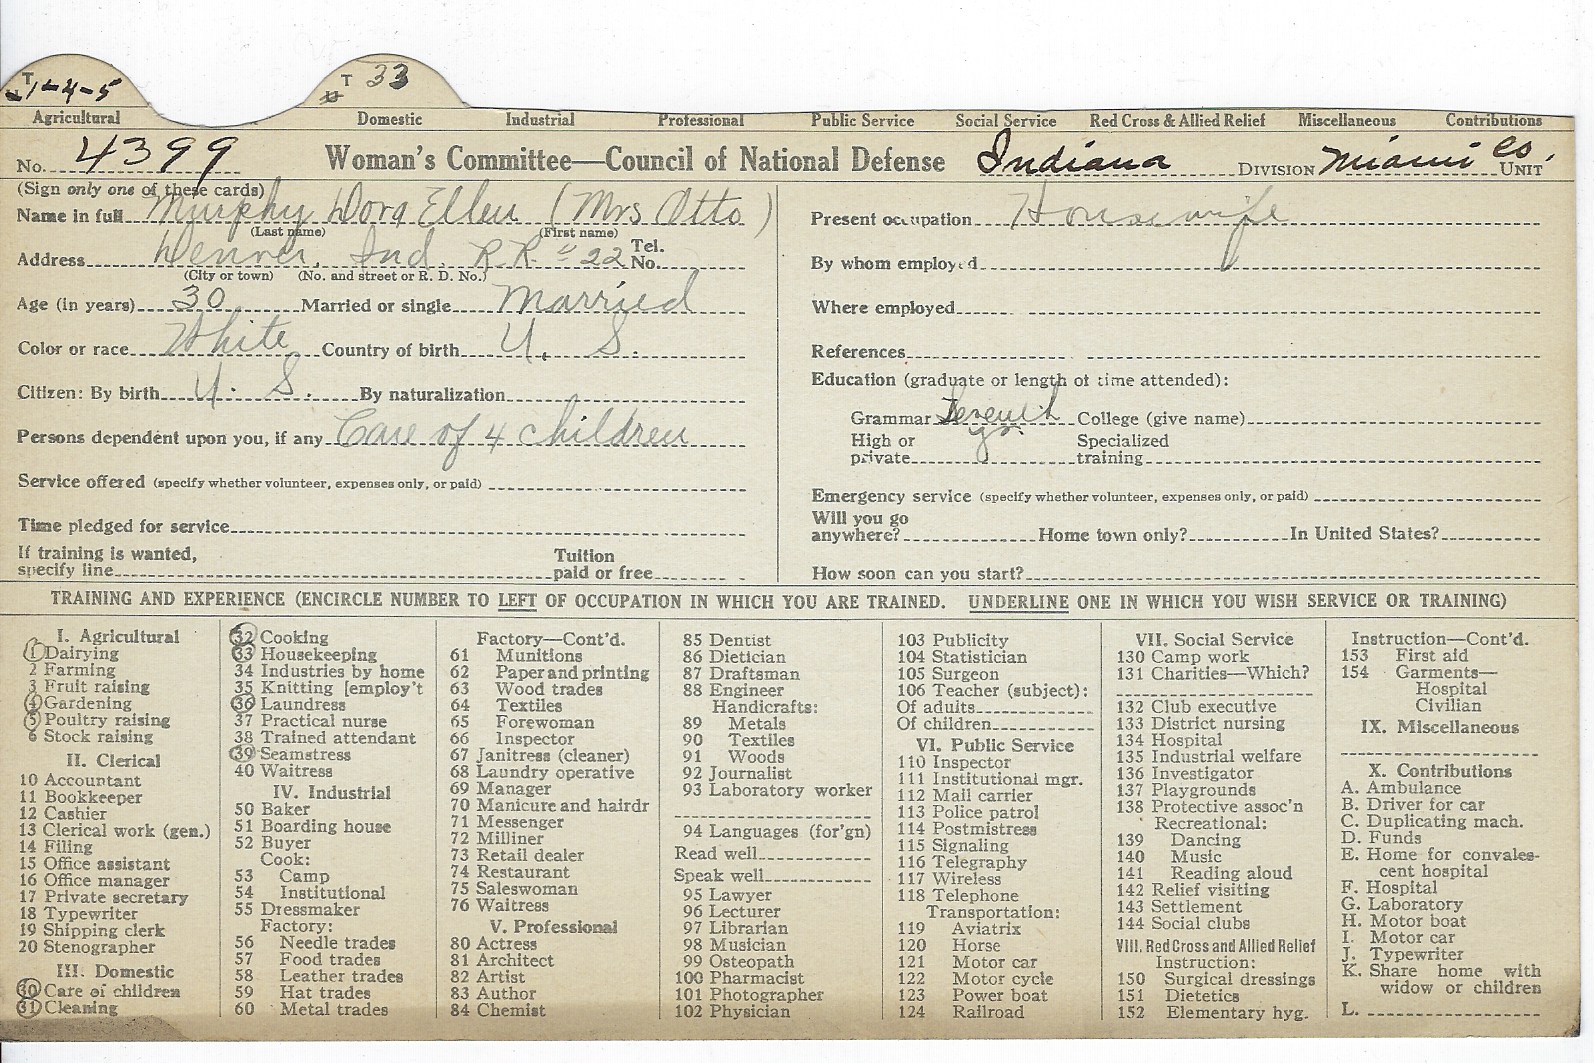 T 1-4-5 T 33
Agricultural Domestic Industrial Professional Public Service Social Service Red Cross & Allied Relief Miscellaneous Contributions
No. 4399 Woman's Committee—Council of National Defense Indiana DIVISION Miami Co. UNIT
(Sign only one of these cards)
Name in full Murphy Dora Ellen (Mrs Otto)
(Last name) (First name)
Address Denver, Ind. R.R. # 22 Tel. No.
(City or town) (No. and street or R. D. No.)
Age (in years) 30 Married or single Married
Color or race White Country of birth U. S.
Citizen: By birth U. S. By naturalization
Persons dependent upon you, if any Care of 4 children
Service offered (specify whether volunteer, expenses only, or paid)
Time pledged for service
If training is wanted, specify line Tuition paid or free
Present occupation Housewife
By whom employed
Where employed
References
Education (graduate or length of time attended):
Grammar Seventh yr. College (give name)
High or private Specialized training
Emergency service (specify whether volunteer, expenses only, or paid)
Will you go anywhere? Home town only? In United States?
How soon can you start?
TRAINING AND EXPERIENCE (ENCIRCLE NUMBER TO LEFT OF OCCUPATION IN WHICH YOU ARE TRAINED. UNDERLINE ONE IN WHICH YOU WISH SERVICE OR TRAINING)
I. Agricultural
1 Dairying
2 Farming
3 Fruit raising
4 Gardening
5 Poultry raising
6 Stock raising
II. Clerical
10 Accountant
11 Bookkeeper
12 Cashier
13 Clerical work (gen.)
14 Filing
15 Office assistant
16 Office manager
17 Private secretary
18 Typewriter
19 Shipping clerk
20 Stenographer
III. Domestic
30 Care of children
31 Cleaning
32 Cooking
33 Housekeeping
34 Industries by home
35 Knitting [employ't
36 Laundress
37 Practical nurse
38 Trained attendant
39 Seamstress
40 Waitress
IV. Industrial
50 Baker
51 Boarding house
52 Buyer
Cook:
53 Camp
54 Institutional
55 Dressmaker
Factory:
56 Needle trades
57 Food trades
58 Leather trades
59 Hat trades
60 Metal trades
Factory—Cont'd.
61 Munitions
62 Paper and printing
63 Wood trades
64 Textiles
65 Forewoman
66 Inspector
67 Janitress (cleaner)
68 Laundry operative
69 Manager
70 Manicure and hairdr
71 Messenger
72 Milliner
73 Retail dealer
74 Restaurant
75 Saleswoman
76 Waitress
V. Professional
80 Actress
81 Architect
82 Artist
83 Author
84 Chemist
85 Dentist
86 Dietician
87 Draftsman
88 Engineer
Handicrafts:
89 Metals
90 Textiles
91 Woods
92 Journalist
93 Laboratory worker
94 Languages (for'gn)
Read well
Speak well
95 Lawyer
96 Lecturer
97 Librarian
98 Musician
99 Osteopath
100 Pharmacist
101 Photographer
102 Physician
103 Publicity
104 Statistician
105 Surgeon
106 Teacher (subject):
Of adults
Of children
VI. Public Service
110 Inspector
111 Institutional mgr.
112 Mail carrier
113 Police patrol
114 Postmistress
115 Signaling
116 Telegraphy
117 Wireless
118 Telephone
Transportation:
119 Aviatrix
120 Horse
121 Motor car
122 Motor cycle
123 Power boat
124 Railroad
VII. Social Service
130 Camp work
131 Charities—Which?
132 Club executive
133 District nursing
134 Hospital
135 Industrial welfare
136 Investigator
137 Playgrounds
138 Protective assoc'n
Recreational:
139 Dancing
140 Music
141 Reading aloud
142 Relief visiting
143 Settlement
144 Social clubs
VIII. Red Cross and Allied Relief
Instruction:
150 Surgical dressings
151 Dietetics
152 Elementary hyg.
Instruction—Cont'd.
153 First aid
154 Garments—
Hospital
Civilian
IX. Miscellaneous
X. Contributions
A. Ambulance
B. Driver for car
C. Duplicating mach.
D. Funds
E. Home for convales-
cent hospital
F. Hospital
G. Laboratory
H. Motor boat
I. Motor car
J. Typewriter
K. Share home with
widow or children
L.